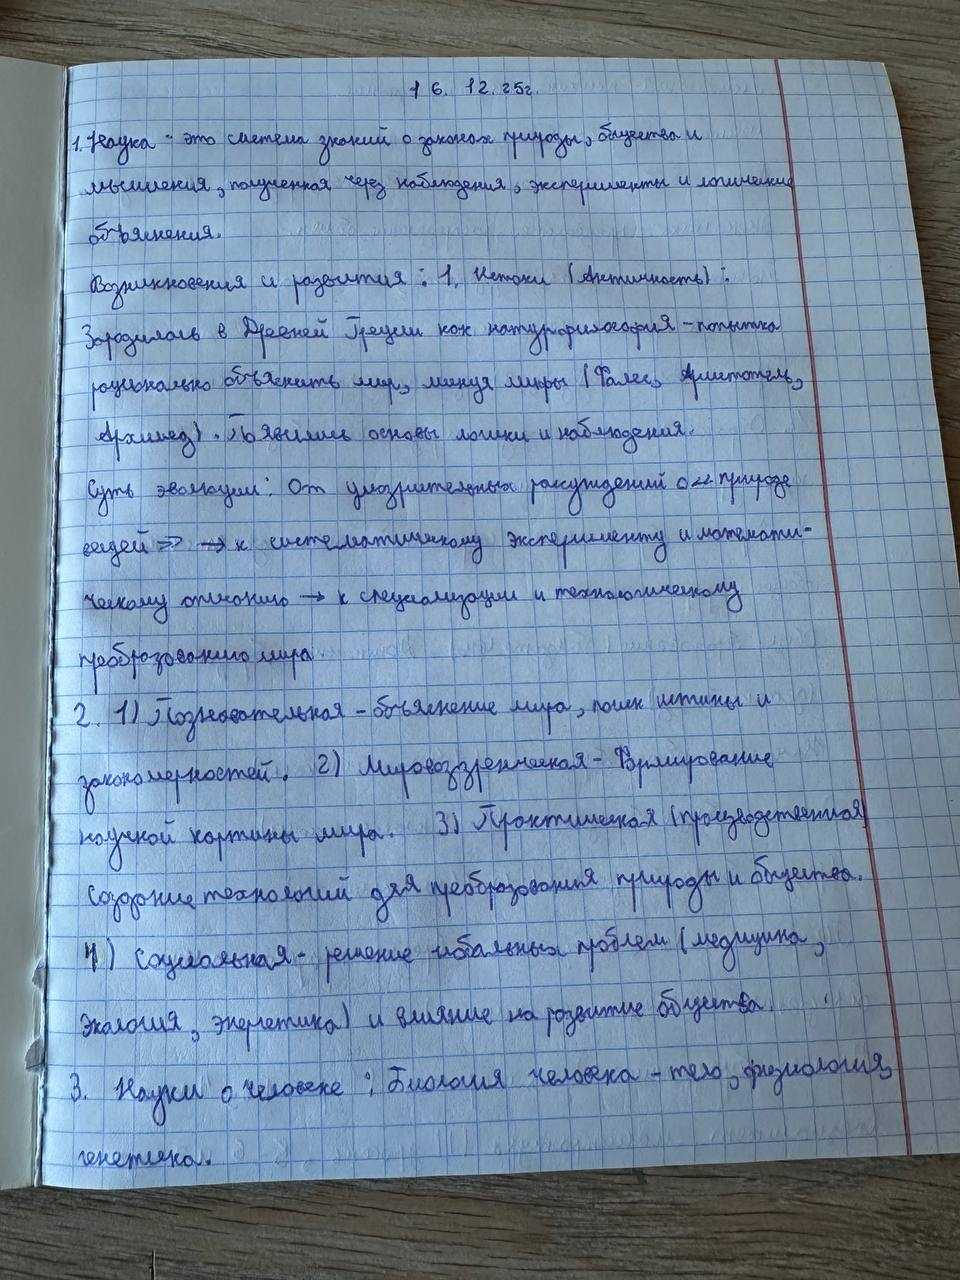 16. 12. 25г.
1. Наука - это система знаний о законах природы, общества и
мышления, полученная через наблюдения, эксперименты и логические
объяснения.
Возникновения и развития: 1. Истоки (Античность):
Зародилась в Древней Греции как натурфилософия - попытка
рационально объяснить мир, минуя мифы (Фалес, Аристотель,
Архимед). Появились основы логики и наблюдения.
Суть эволюции: От умозрительных рассуждений о « природе
вещей » → к систематическому эксперименту и математи-
ческому описанию → к специализации и технологическому
преобразованию мира
2. 1) Познавательная - объяснение мира, поиск истины и
закономерностей. 2) Мировоззренческая - Формирование
научной картины мира. 3) Практическая (производственная)
создание технологий для преобразования природы и общества.
4) Социальная - решение глобальных проблем (медицина,
экология, энергетика) и влияние на развитие общества.
3. Науки о человеке: Биология человека - тело, физиология,
генетика.